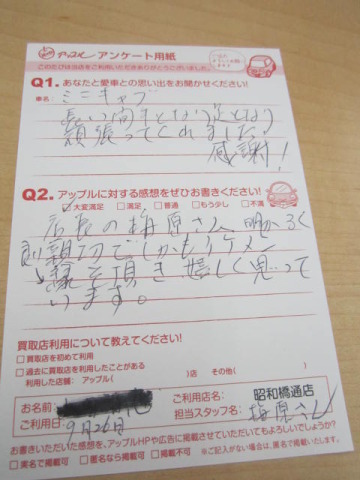 アップル アンケート用紙
このたびは当店をご利用いただきありがとうございました。
Q1. あなたと愛車との思い出をお聞かせください!
車名: ミニキャブ
長い間手となり足となり
頑張ってくれました!
感謝!
Q2. アップルに対する感想をぜひお書きください!
☑大変満足 □満足 □普通 □もう少し □不満
店長の梅原さん 明かるく
親切でしかもイケメン
縁を頂き嬉しく思って
います。
買取店利用について教えてください!
□買取店を初めて利用
□過去に買取店を利用したことがある
利用した店舗: アップル( )店 その他( )
お名前:
ご利用店名: 昭和橋通店
ご利用日: 9月26日
担当スタッフ名: 梅原さん
お書きいただいた感想を、アップルHPや広告に掲載させていただいてもよろしいでしょうか?
□実名で掲載可 □匿名なら掲載可 □掲載不可 ※ご記入がない場合は、匿名で掲載いたします。